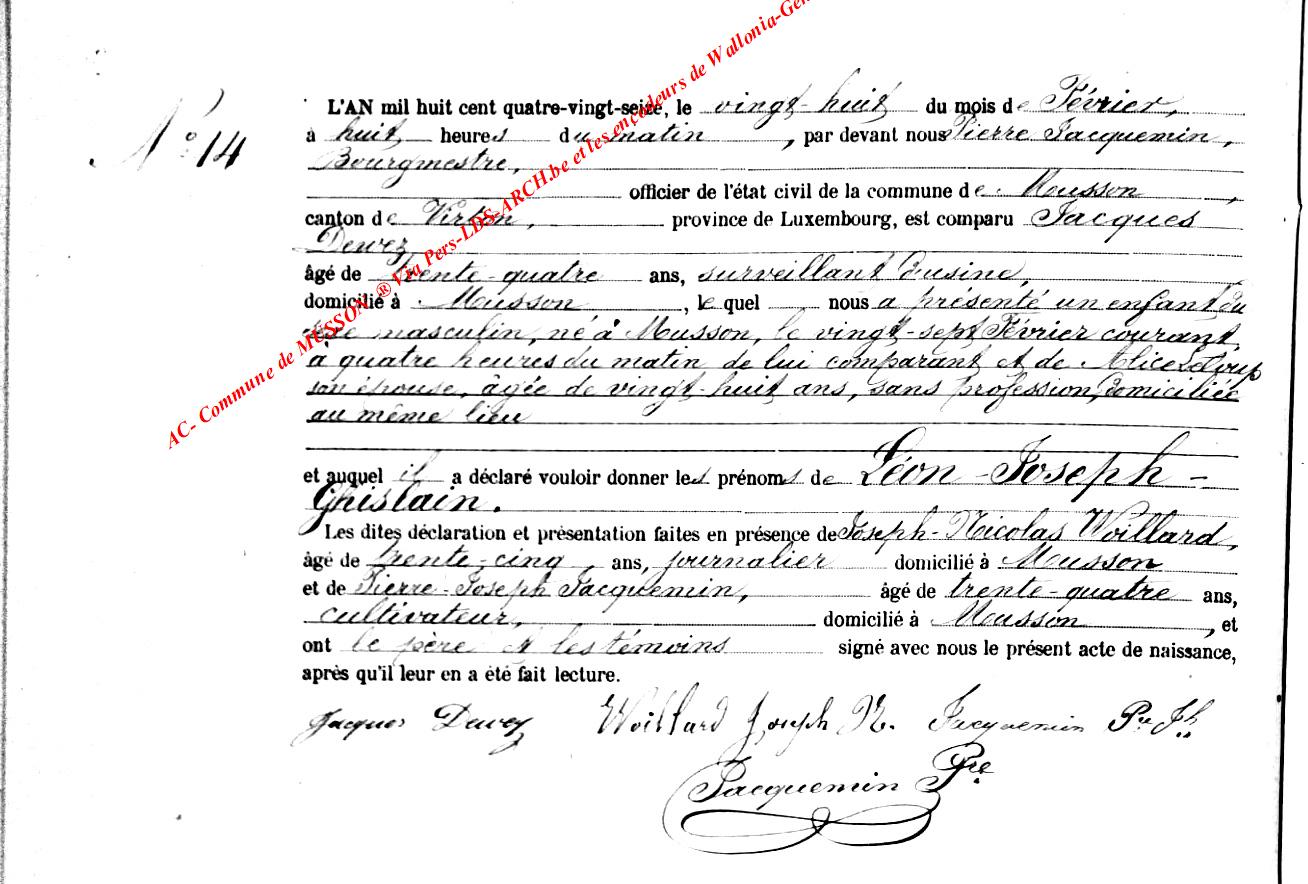 AC- Commune de MUSSON ® Via Pers-LDS-ARCH.be et les encodeurs de Wallonia-Gen
N° 14
L'AN mil huit cent quatre-vingt-seize, le vingt-huit du mois de Février,
à huit heures du matin, par devant nous Pierre Jacquemin,
Bourgmestre,
officier de l'état civil de la commune de Musson,
canton de Virton, province de Luxembourg, est comparu Jacques
Dewez
âgé de trente-quatre ans, surveillant d'usine,
domicilié à Musson, le quel nous a présenté un enfant du
sexe masculin, né à Musson, le vingt-sept Février courant,
à quatre heures du matin de lui comparant et de Alice Leloup
son épouse, âgée de vingt-huit ans, sans profession, domiciliée
au même lieu
et auquel il a déclaré vouloir donner les prénoms de Léon-Joseph-
Ghislain.
Les dites déclaration et présentation faites en présence de Joseph-Nicolas Woillard,
âgé de trente-cinq, ans, journalier domicilié à Musson
et de Pierre-Joseph Jacquemin, âgé de trente-quatre ans,
cultivateur, domicilié à Musson, et
ont le père et les témoins signé avec nous le présent acte de naissance,
après qu'il leur en a été fait lecture.
Jacques Dewez Woillard Joseph N. Jacquemin Pre Jh
Jacquemin Pre